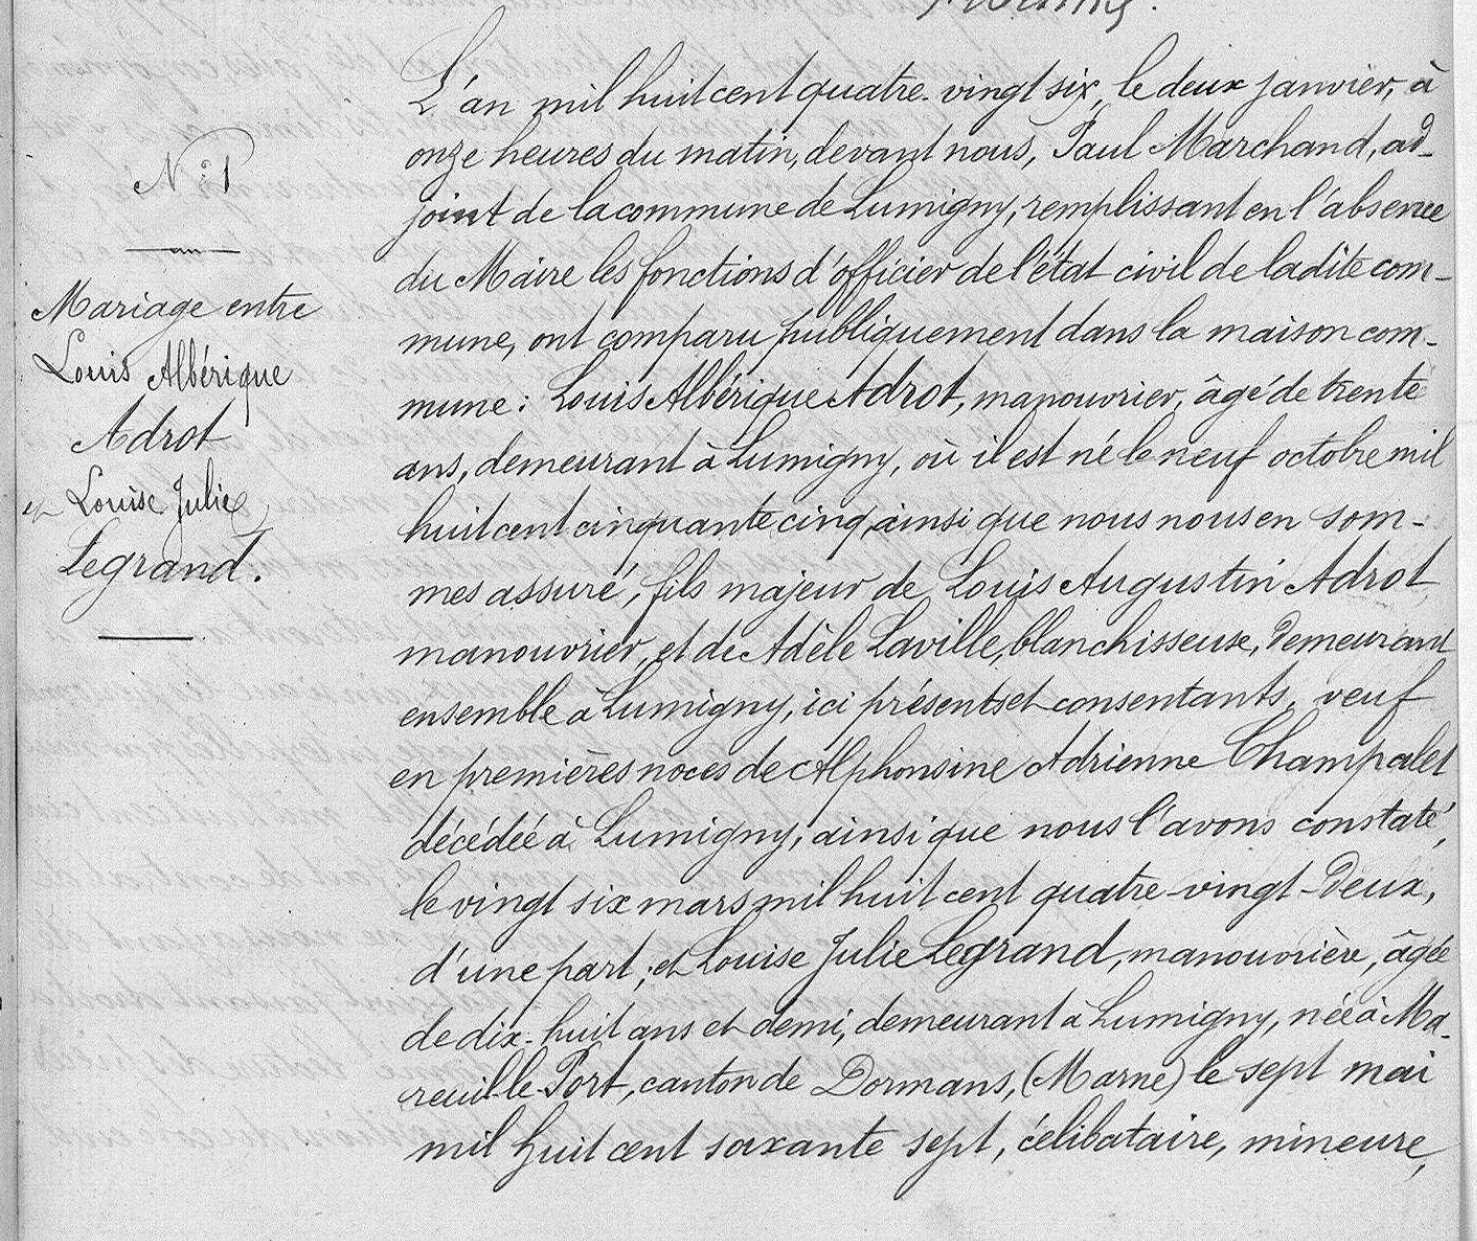 N° 1
Mariage entre
Louis Albérique
Adrot
et Louise Julie
Legrand.
L'an mil huit cent quatre-vingt six, le deux janvier, à
onze heures du matin, devant nous, Paul Marchand, ad-
joint de la commune de Lumigny, remplissant en l'absence
du Maire les fonctions d'officier de l'état civil de ladite com-
mune, ont comparu publiquement dans la maison com-
mune: Louis Albérique Adrot, manouvrier, âgé de trente
ans, demeurant à Lumigny, où il est né le neuf octobre mil
huit cent cinquante cinq, ainsi que nous nous en som-
mes assuré, fils majeur de Louis Augustin Adrot,
manouvrier, et de Adèle Laville, blanchisseuse, demeurant
ensemble à Lumigny, ici présents et consentants, veuf
en premières noces de Alphonsine Adrienne Champalet
décédée à Lumigny, ainsi que nous l'avons constaté,
le vingt six mars mil huit cent quatre-vingt-deux,
d'une part; et Louise Julie Legrand, manouvrière, âgée
de dix-huit ans et demi, demeurant à Lumigny, née à Ma-
reuil-le-Port, canton de Dormans, (Marne) le sept mai
mil huit cent soixante sept, célibataire, mineure,